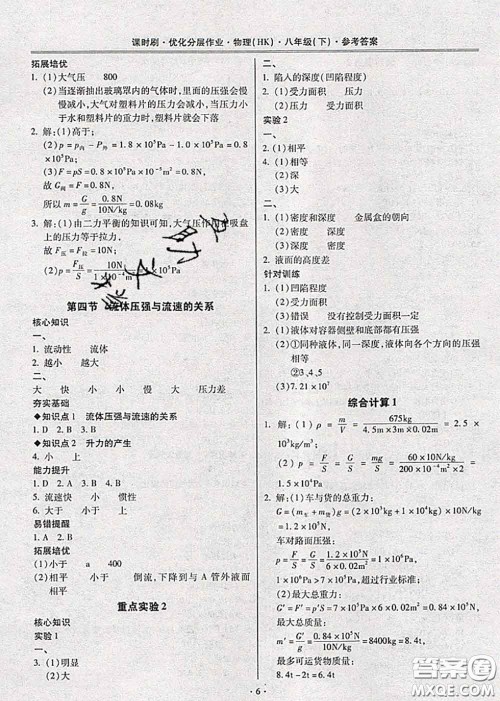 课时刷·优化分层作业·物理(HK)·八年级(下)·参考答案
拓展培优
1. (1)大气压 800
(2)当逐渐抽出玻璃罩内的气体时,里面的压强会
慢慢减小,大气对塑料片的压力会减小,当压力小
于水和塑料片的重力时,塑料片就会下落
2. 解:(1)高于;
(2)p = p内 − P外 = 1.8×10⁵Pa − 1.0×10⁵Pa =
0.8×10⁵Pa;
(3)F = pS = 0.8×10⁵Pa×10⁻⁵m² = 0.8N
故 G阀 = F = 0.8N
所以 m = G/g = 0.8N/10N/kg = 0.08kg
3. 解:(1)由二力平衡的知识可知,大气压作用在吸盘
上的压力等于拉力,
故 F压 = F拉 = 10N;
(2)p = F压/S = 10N/1×10⁻⁴m² = 1×10⁵Pa
第四节 流体压强与流速的关系
核心知识
一、
1. 流动性 流体
2. 越小 越大
二、
大 快 小 小 慢 大 压力差
夯实基础
◆知识点1 流体压强与流速的关系
1. D 2. B 3. B
◆知识点2 升力的产生
4. 小 上
能力提升
1. B 2. B 3. D 4. B
5. 流速快 小 惯性
6. 大于 小于 上
易错提醒
1. D 2. B
拓展培优
(1)小于 a 400
(2)相平 小于 倒流,下降到与 A 管外液面
相平
重点实验2
核心知识
实验1
一、
3. (1)明显
(2)大
二、
1. 陷入的深度(凹陷程度)
2. (1)受力面积 压力
(2)压力 受力面积
实验2
一、
3. (1)相平
4. (1)相等
(2)深
(3)大
二、
1. (1)密度和深度 金属盒的朝向
(2)密度 深度
(3)深度 密度
2. 液面的高度差
针对训练
1. (1)凹陷程度
(2)受力面积
(3)错误 没有控制受力面积一定
2. (1)液体对容器侧壁和底部都有压强
(2)①同种液体,同一深度,液体向各个方向的压
强相等
②3,4,5
(3)7.21×10⁷
综合计算1
1. 解:(1)ρ = m/V = 675kg/4.5m×3m×0.02m = 2.5×
10³kg/m³;
(2)p = F/S = G/S = mg/S = 60×10N/kg/200×10⁻⁴m²×2 =
1.5×10⁴Pa
2. 解:(1)车与货的总重力:
G = (m车 + m货)g = (2×10³kg + 1×10⁴kg)×
10N/kg = 1.2×10⁵N,
车对路面压强:
p = F/S = G/S = 1.2×10⁵N/6×0.02m² = 1×10⁶Pa,
1×10⁶Pa > 7×10⁵Pa,超过行业标准;
(2)最大总重力:
G′ = F′ = p′S = 7×10⁵Pa×6×0.02m² = 0.84×10⁵N
最大总质量:
m′ = G′/g = 0.84×10⁵N/10N/kg = 8400kg = 8.4t,
最多可运货物质量:
8.4t − 2t = 6.4t
· 6 ·
答案圈
MXQE.COM